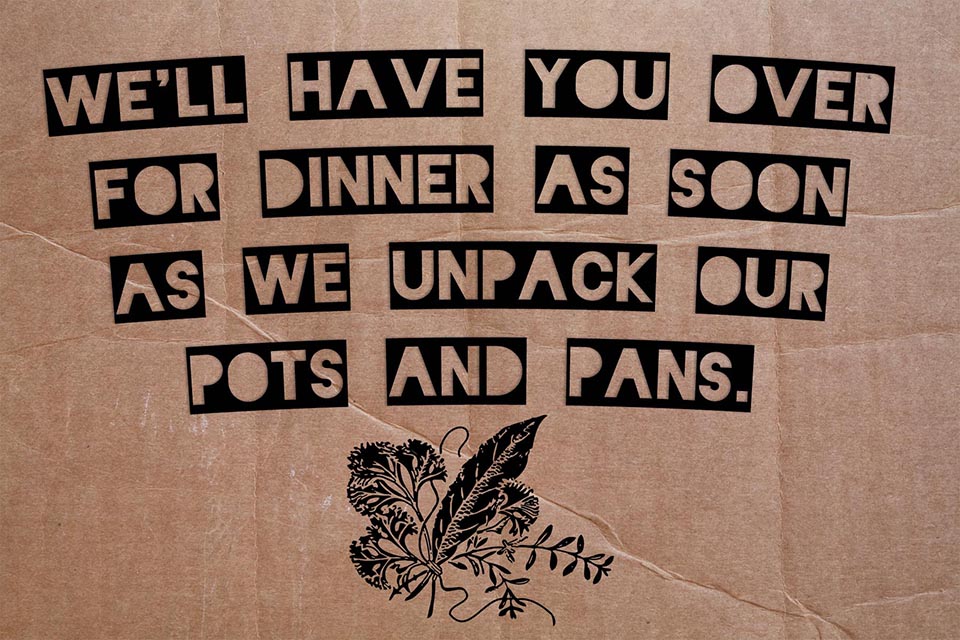 WE'LL HAVE YOU OVER
FOR DINNER AS SOON
AS WE UNPACK OUR
POTS AND PANS.